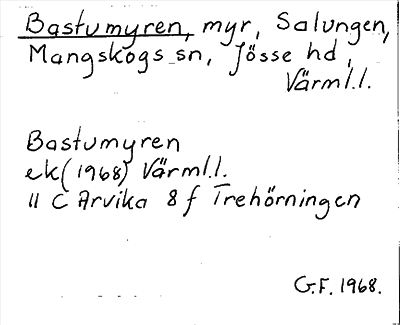 Bastumyren, myr, Salungen,
Mangskogs sn, Jösse hd,
Värml.l.
Bastumyren
ek(1968) Värml.l.
11 C Arvika 8 f Trehörningen
G.F. 1968.